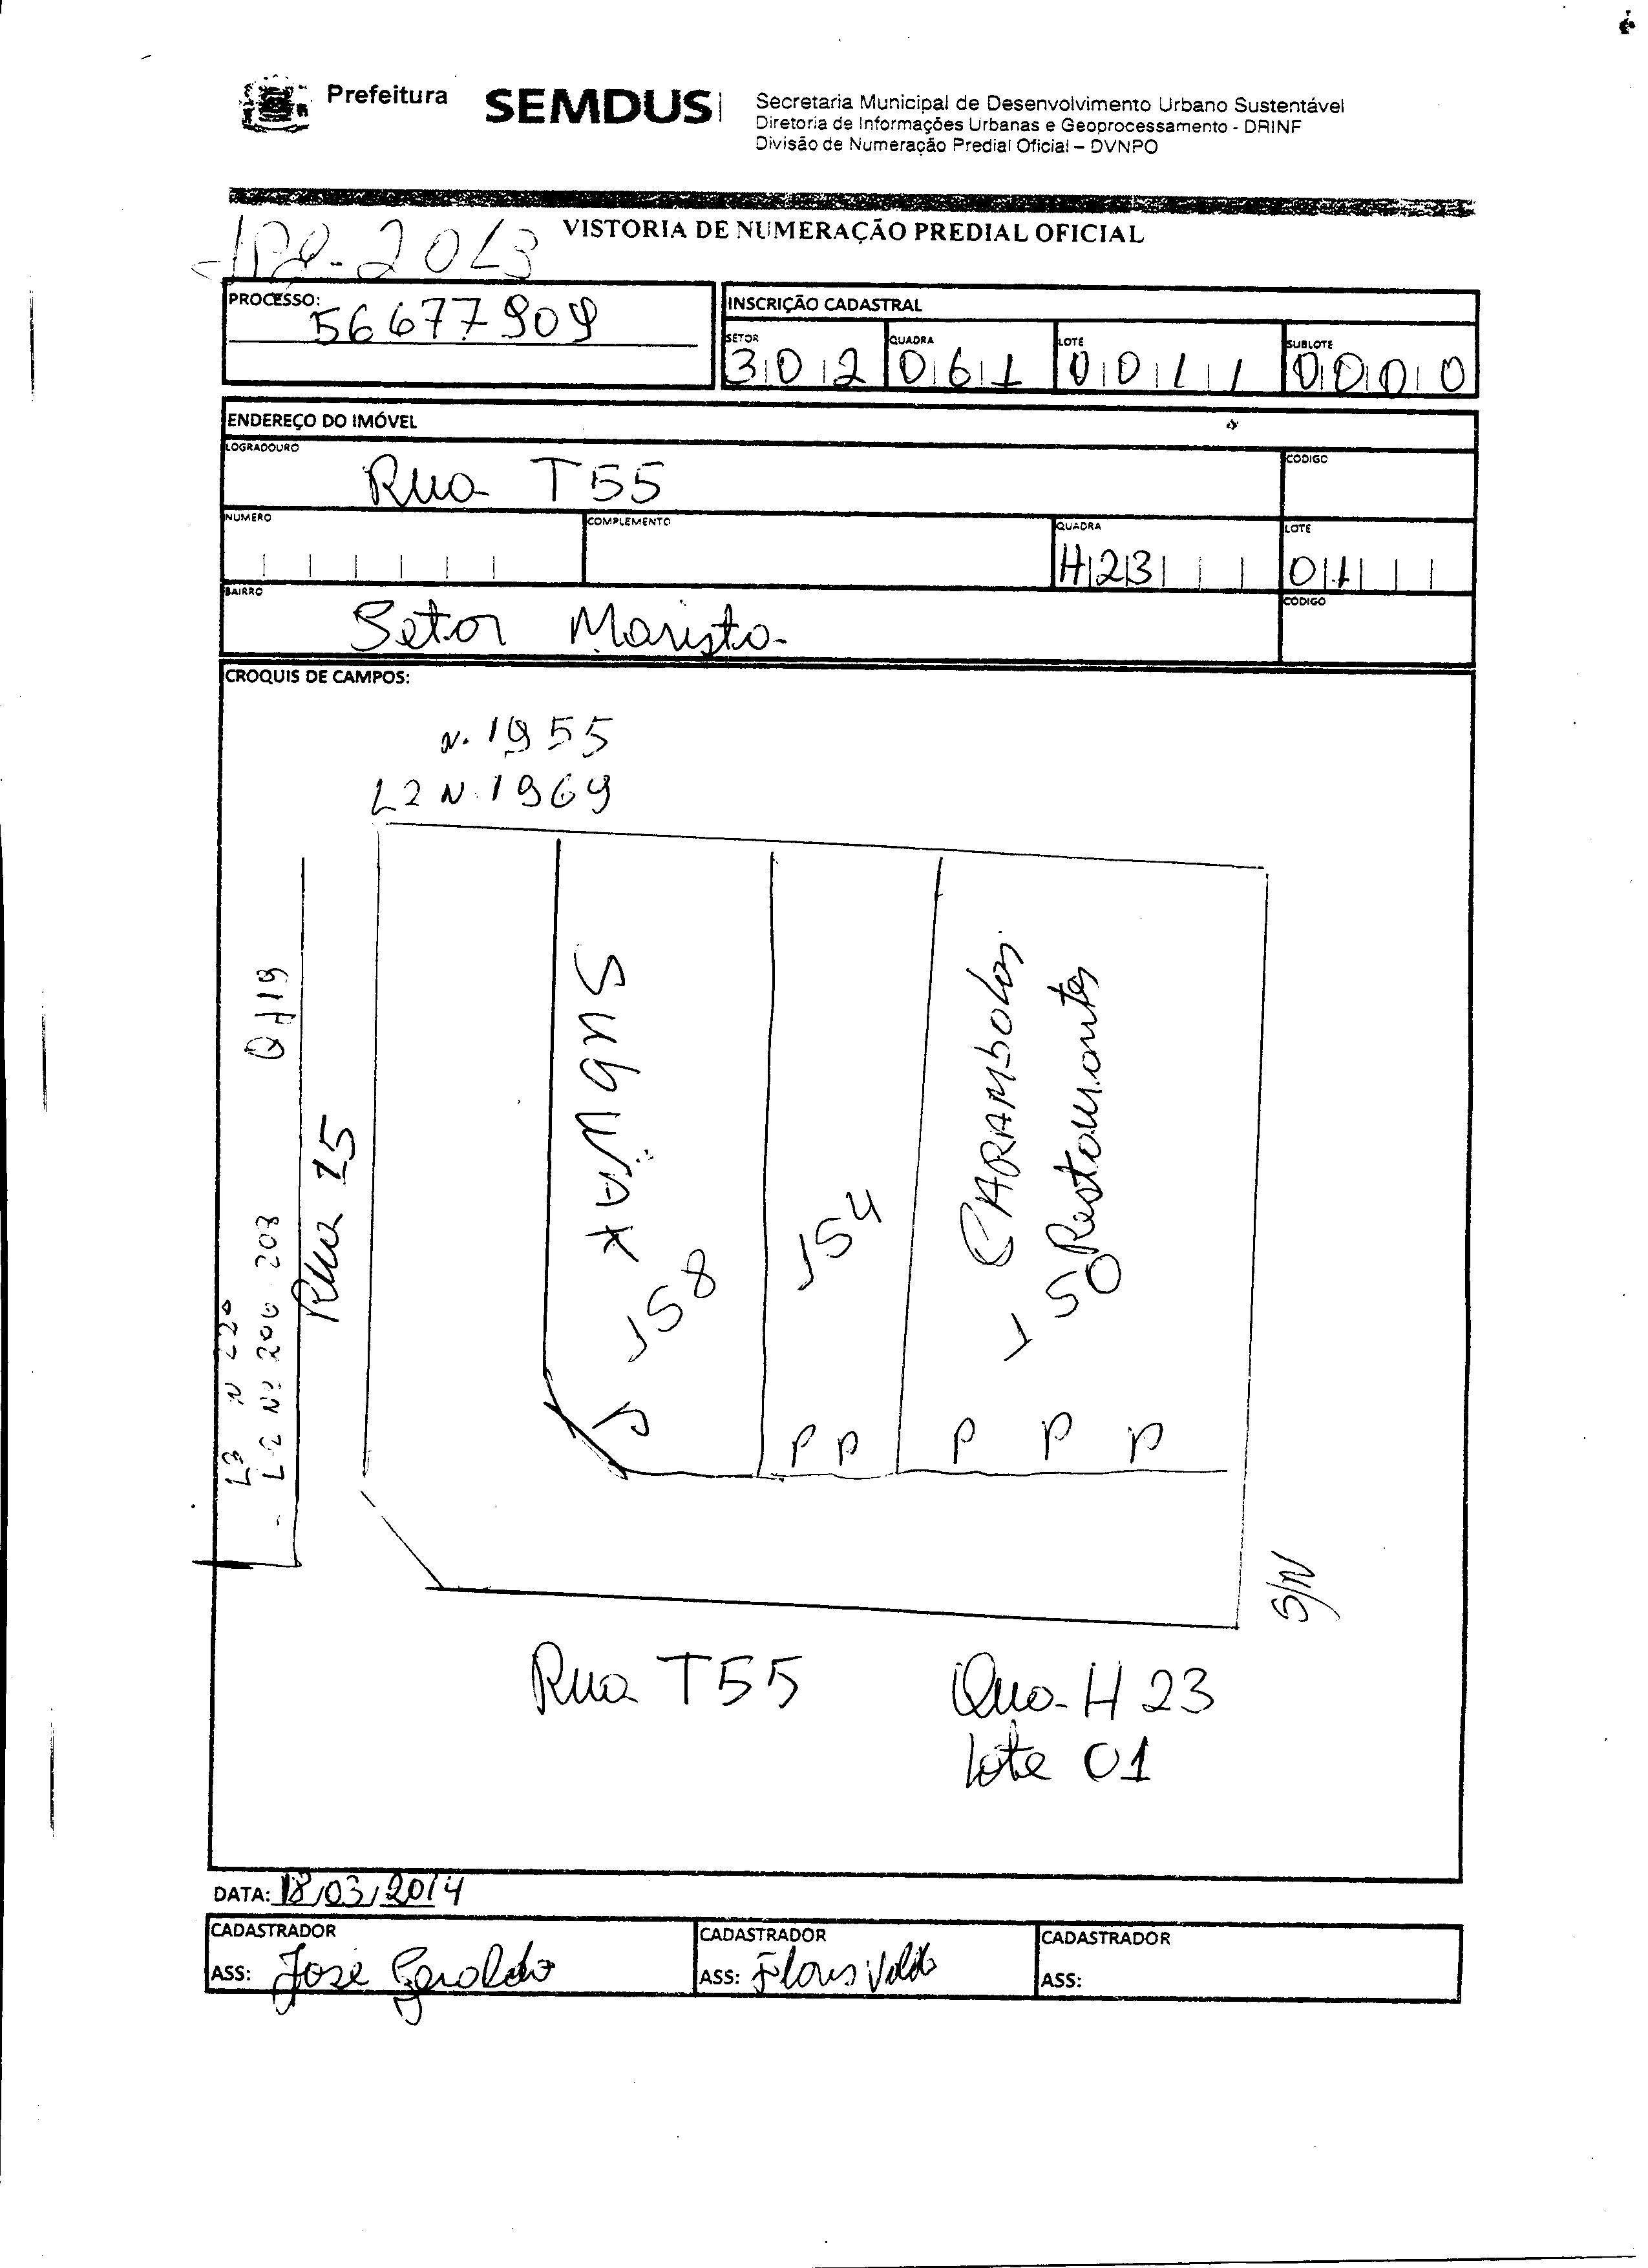 Prefeitura
SEMDUS
Secretaria Municipal de Desenvolvimento Urbano Sustentável
Diretoria de Informações Urbanas e Geoprocessamento - DRINF
Divisão de Numeração Predial Oficial – DVNPO
VISTORIA DE NUMERAÇÃO PREDIAL OFICIAL
2013
PROCESSO: 56677909
INSCRIÇÃO CADASTRAL
SETOR QUADRA LOTE SUBLOTE
302 061 0011 0000
ENDEREÇO DO IMÓVEL
LOGRADOURO CÓDIGO
Rua T55
NUMERO COMPLEMENTO QUADRA LOTE
H23 01
BAIRRO CÓDIGO
Setor Marista
CROQUIS DE CAMPOS:
N. 1955
L2 N. 1969
QH19
Rua 15
L3 N 220
L2 Nº 200 203
SUBWAY
158
154
CARAMBOLAS
Restaurantes
150
P
P P
P P P
S/N
Rua T55
Qua H 23
lote 01
DATA: 18/03/2014
CADASTRADOR
ASS: José Geraldo
CADASTRADOR
ASS: Florisvaldo
CADASTRADOR
ASS: